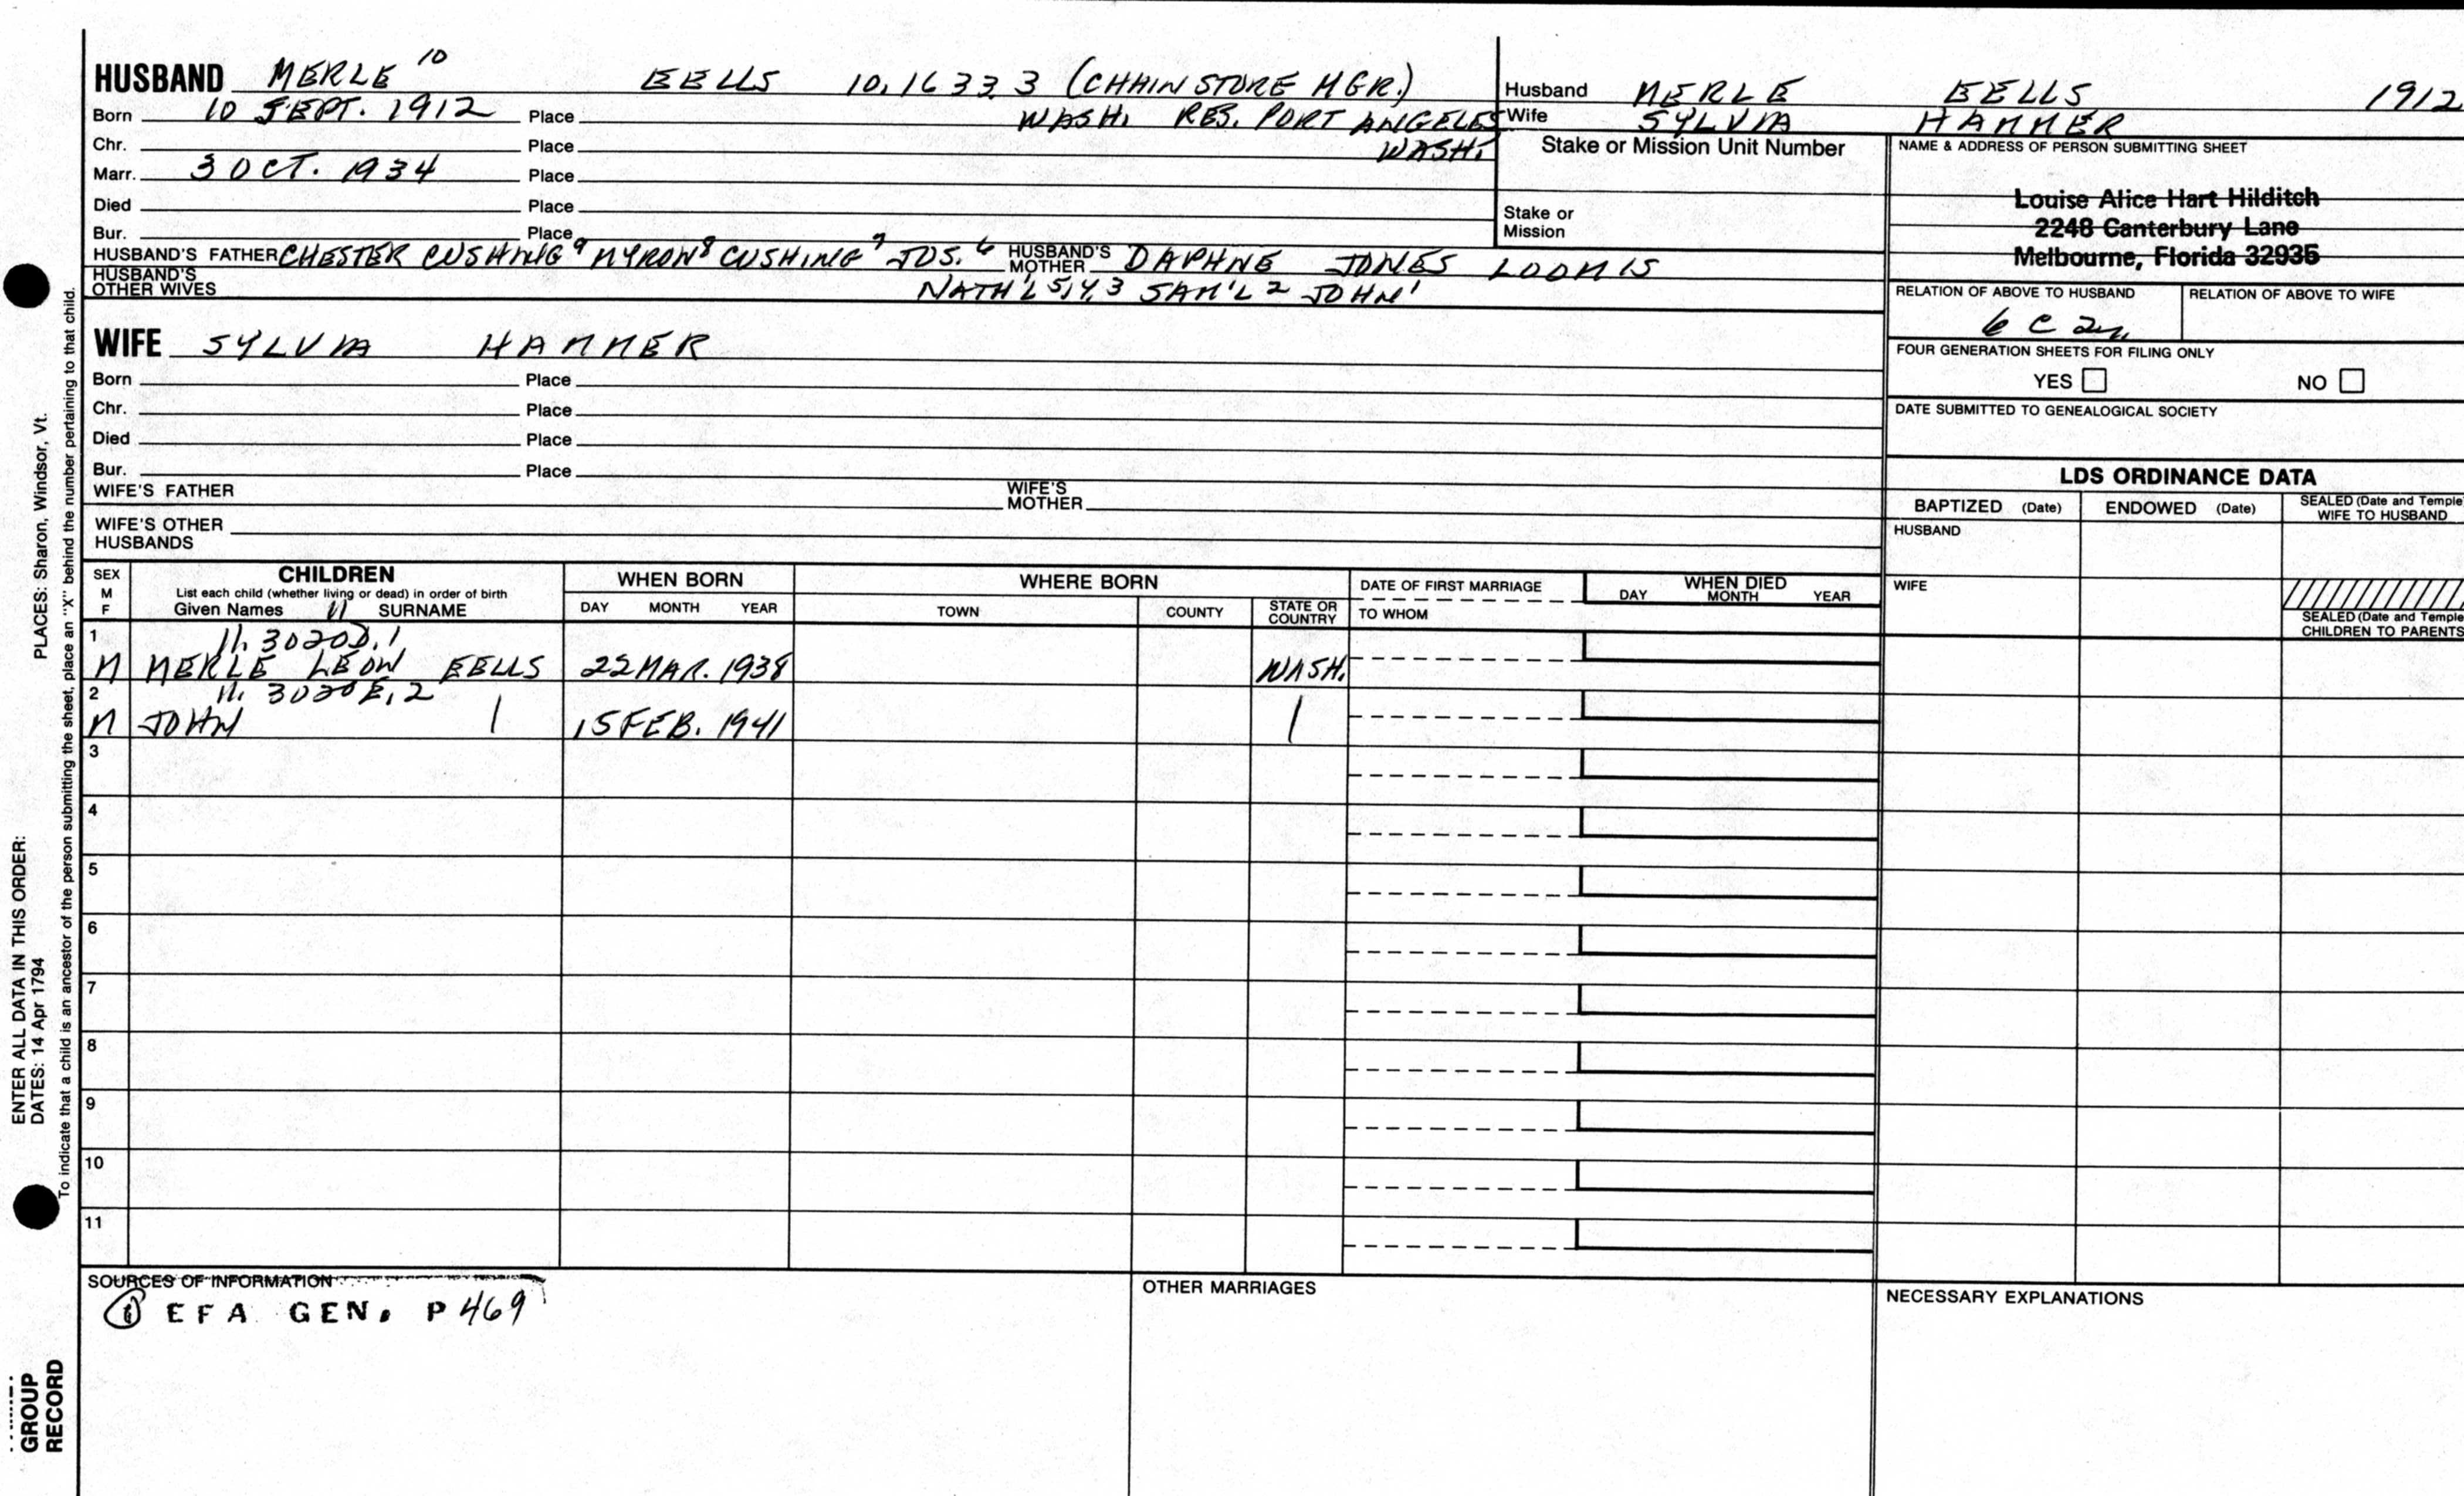 HUSBAND MERLE 10 EELLS 10.1633.3 (CHAIN STORE MGR.)
Born 10 SEPT. 1912 Place WASH. RES. PORT ANGELES
Chr. Place WASH.
Marr. 3 OCT. 1934 Place
Died Place
Bur. Place
HUSBAND'S FATHER CHESTER CUSHING 9 MYRON 8 CUSHING 7 JOS. 6 HUSBAND'S MOTHER DAPHNE JONES LOOMIS
HUSBAND'S OTHER WIVES NATH'L 5,4,3 SAM'L 2 JOHN 1
WIFE SYLVIA HAMMER
Born Place
Chr. Place
Died Place
Bur. Place
WIFE'S FATHER WIFE'S MOTHER
WIFE'S OTHER HUSBANDS
Husband MERLE EELLS 1912
Wife SYLVIA HAMMER
Stake or Mission Unit Number
Stake or Mission
NAME & ADDRESS OF PERSON SUBMITTING SHEET
Louise Alice Hart Hilditch
2248 Canterbury Lane
Melbourne, Florida 32935
RELATION OF ABOVE TO HUSBAND RELATION OF ABOVE TO WIFE
6 C 2r.
FOUR GENERATION SHEETS FOR FILING ONLY
YES NO
DATE SUBMITTED TO GENEALOGICAL SOCIETY
LDS ORDINANCE DATA
BAPTIZED (Date) ENDOWED (Date) SEALED (Date and Temple) WIFE TO HUSBAND
HUSBAND
WIFE
SEALED (Date and Temple) CHILDREN TO PARENTS
SEX M F CHILDREN WHEN BORN WHERE BORN DATE OF FIRST MARRIAGE WHEN DIED
List each child (whether living or dead) in order of birth
Given Names 11 SURNAME DAY MONTH YEAR TOWN COUNTY STATE OR COUNTRY TO WHOM DAY MONTH YEAR
1 11. 3020D.1
M MERLE LEON EELLS 22 MAR. 1938 WASH.
2 11. 3020E.2
M JOHN | 15 FEB. 1941 |
3
4
5
6
7
8
9
10
11
SOURCES OF INFORMATION
① EFA GEN. P 469
OTHER MARRIAGES
NECESSARY EXPLANATIONS
ENTER ALL DATA IN THIS ORDER:
DATES: 14 Apr 1794 PLACES: Sharon, Windsor, Vt.
To indicate that a child is an ancestor of the person submitting the sheet, place an "X" behind the number pertaining to that child.
GROUP
RECORD